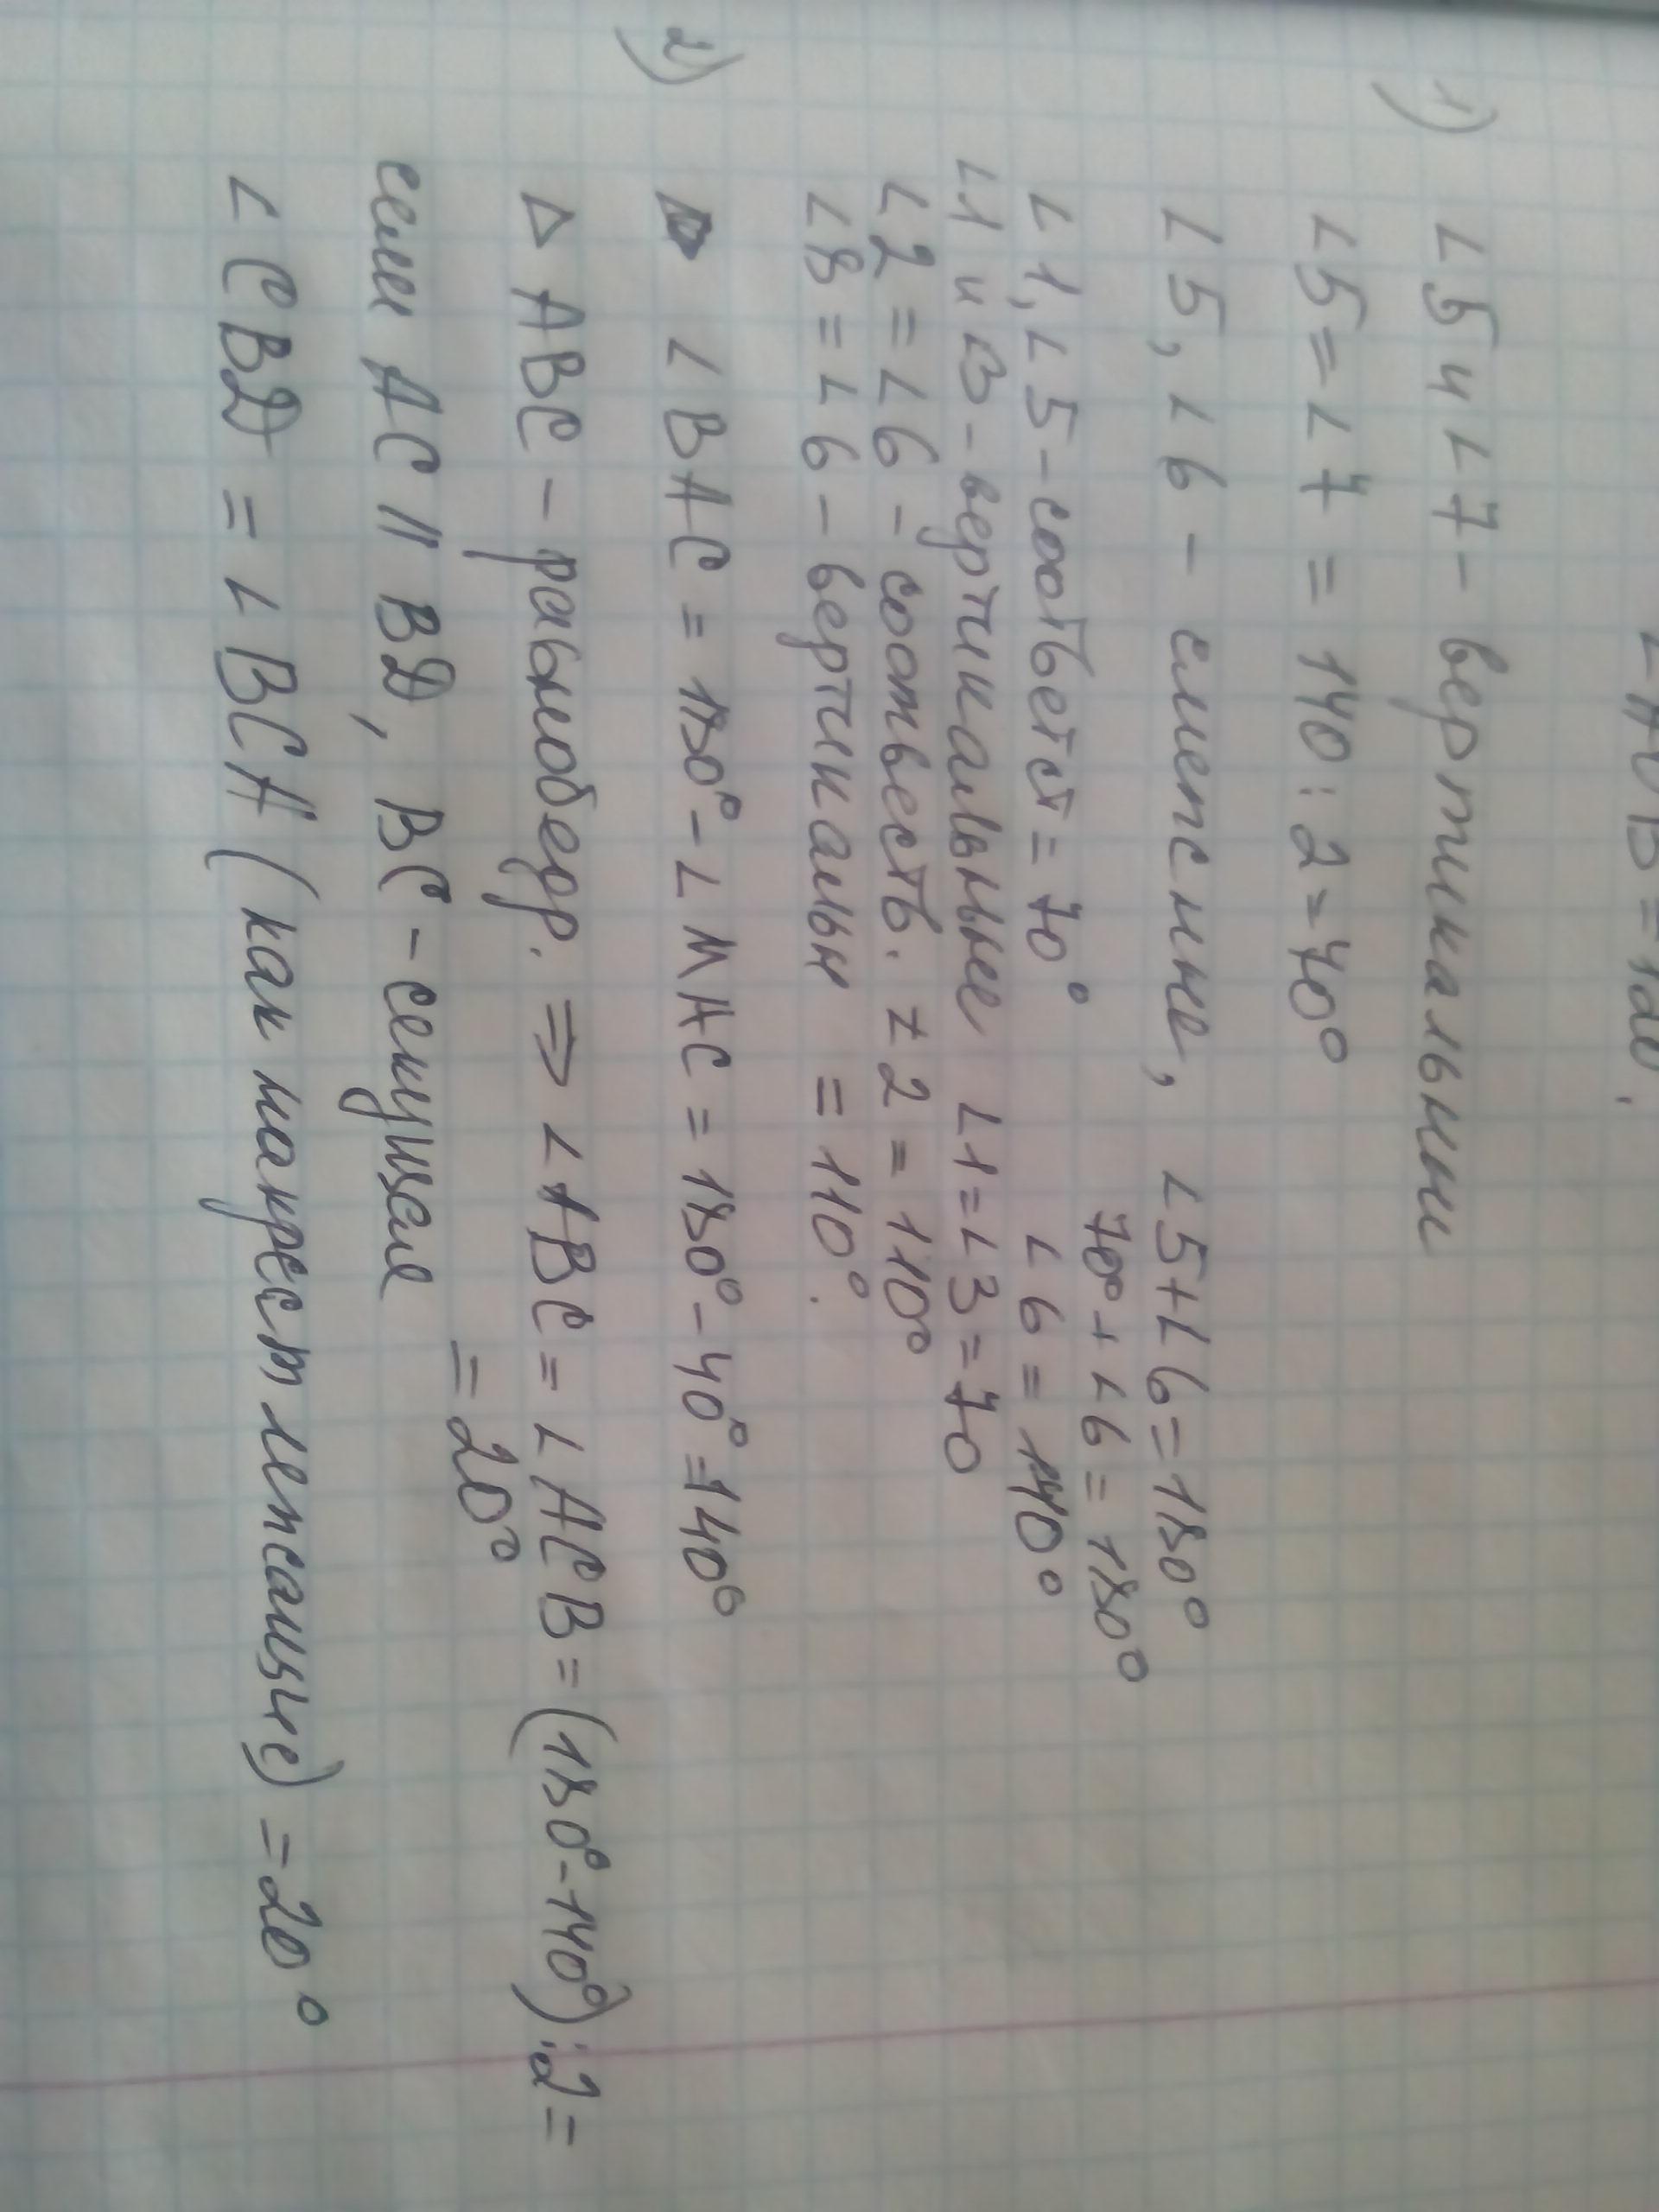 ∠AOB = 120.
1) ∠5 и ∠7 - вертикальны
∠5 = ∠7 = 140 : 2 = 70°
∠5, ∠6 - смежные, ∠5 + ∠6 = 180°
70° + ∠6 = 180°
∠1, ∠5 - соответст = 70° ∠6 = 110°
∠1 и ∠3 - вертикальные ∠1 = ∠3 = 70
∠2 = ∠6 - соответств. ∠2 = 110°
∠8 = ∠6 - вертикальн = 110°.
2) ∠BAC = 180° - ∠MAC = 180° - 40° = 140°
△ABC - равнобедр. ⇒ ∠ABC = ∠ACB = (180° - 140°) : 2 =
= 20°
если AC || BD, BC - секущая
∠CBD = ∠BCA (как накрест лежащие) = 20°